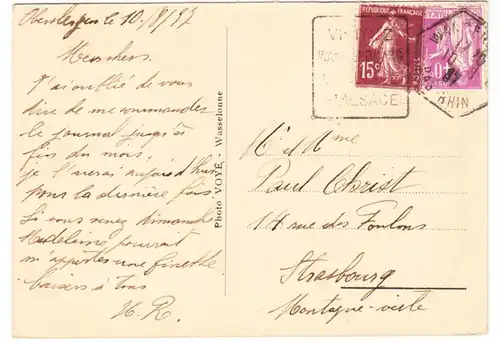 Oberstergen le 10/8/37
Mes chers
J'ai oublié de vous
dire de me commander
le journal jusqu'à
fin du mois,
je l'aurai aujourd'hui
pour la dernière fois.
Si vous venez dimanche
Madeleine pourrait
m'apporter une finette
baisers à tous
H. R.
Photo VOYÉ - Wasselonne
RÉPUBLIQUE FRANÇAISE
15c
POSTES
ALSACE
RHIN
37
M. et Mme
Paul Christ
14 rue des Foulons
Strasbourg
Montagne-verte